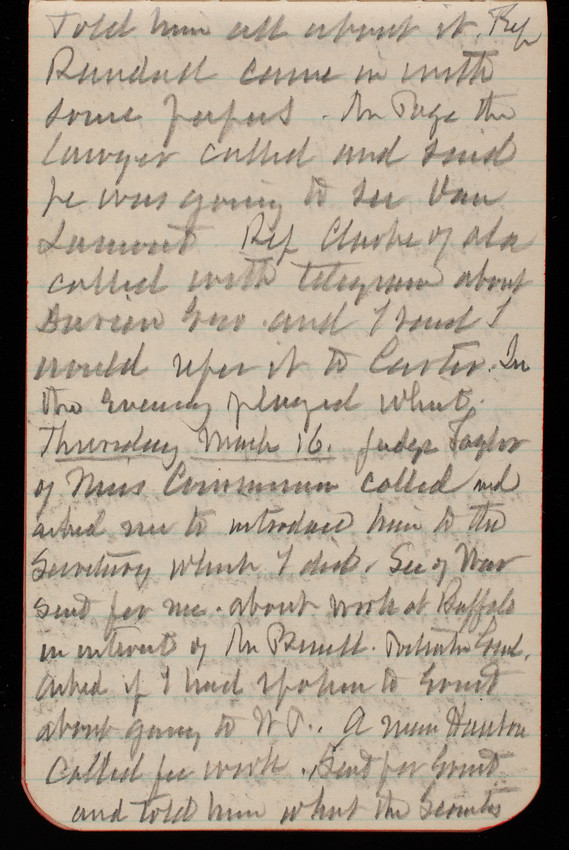 told him all about it. Rep
Randall came in with
some papers. Mr Page the
lawyer called and said
he was going to see Dan
Lamont Rep Clarke of Ala
called with telegram about
Darien Geo. and I said I
would refer it to Carter. In
the Evening played Whist.
Thursday March 16. Judge Taylor
of Miss Commission called and
asked me to introduce him to the
Secretary which I did. Sec of War
sent for me. about work at Buffalo
in interest of Mr
Asked if I had spoken to Grant
about going to W P. A man
Called for work. Sent for Grant
and told him what the